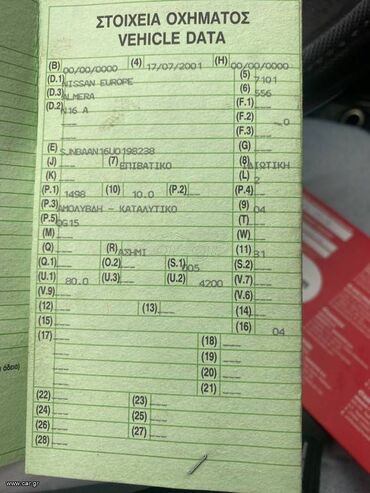 ΣΤΟΙΧΕΙΑ ΟΧΗΜΑΤΟΣ
VEHICLE DATA
(B) 00/00/0000 (4) 17/07/2001 (H) 00/00/0000
(D.1) NISSAN EUROPE (5) 7101
(D.3) ALMERA (6) 556
(D.2) N16 A (F.1)
(F.2) 0
(F.3)
(E) SJNBAAN16U0198238 (G)
(J) (7) ΕΠΙΒΑΤΙΚΟ (8) ΙΔΙΩΤΙΚΗ
(K) (L) 2
(P.1) 1498 (10) 10.0 (P.2) (P.4)
(P.3) ΑΜΟΛΥΒΔΗ - ΚΑΤΑΛΥΤΙΚΟ (9) 04
(P.5) QG15 (T)
(M) (W)
(Q) (R) ΑΣΗΜΙ (11) 31
(Q.1) (O.2) (S.1) 005 (S.2)
(U.1) 80.0 (U.3) (U.2) 4200 (V.7)
(V.9) (V.6)
(12) (13) (14)
(15) (16) 04
(17) (18)
(19)
(20)
(21)
(22) (23)
(24) (25)
(26) (27)
(28)
η άδεια)
www.car.gr